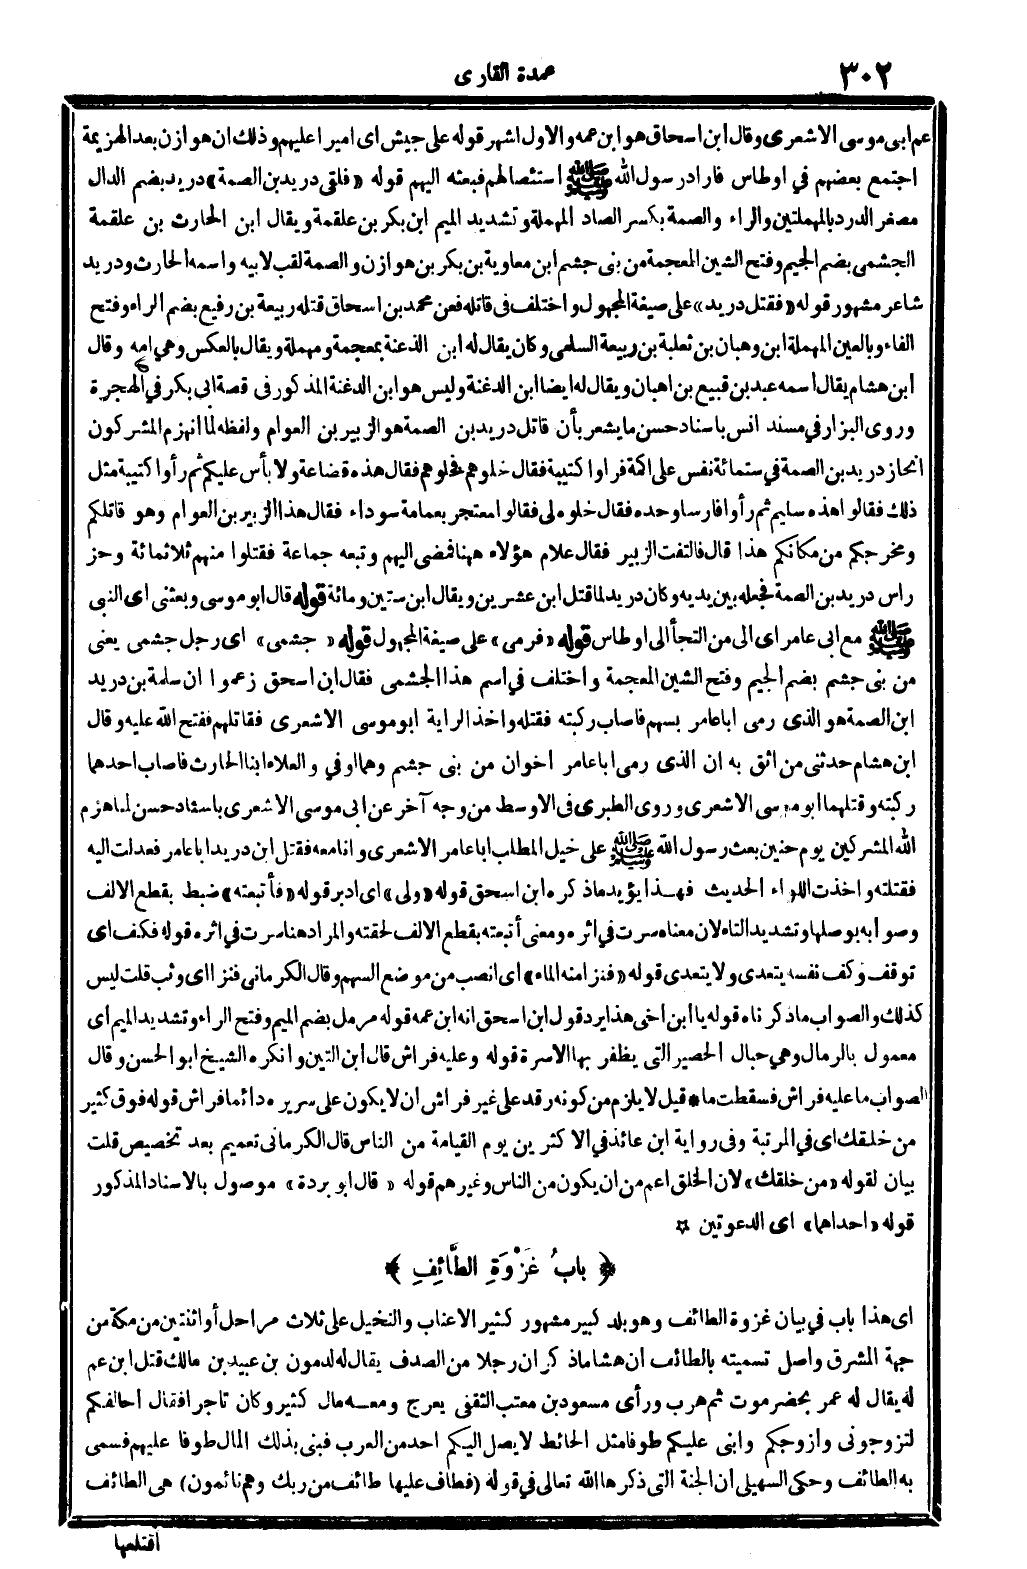 ٣٠٢ عمدة القارى
عم ابى موسى الاشعرى وقال ابن اسحاق هو ابن عمه والاول اشهر قوله على جيش اى اميرا عليهم وذلك ان هوازن بعد الهزيمة
اجتمع بعضهم في اوطاس فاراد رسول الله ﷺ استئصالهم فبعثه اليهم قوله «فلقى دريد بن الصمة» دريد بضم الدال
مصغر الدرد بالمهملتين والراء والصمة بكسر الصاد المهملة وتشديد الميم ابن بكر بن علقمة ويقال ابن الحارث بن علقمة
الجشمى بضم الجيم وفتح الشين المعجمة من بنى جشم ابن معاوية بن بكر بن هوازن والصمة لقب لابيه واسمه الحارث ودريد
شاعر مشهور قوله «فقتل دريد» على صيغة المجهول واختلف فى قاتله فعن محمد بن اسحاق قتله ربيعة بن رفيع بضم الراء وفتح
الفاء وبالعين المهملة ابن وهبان بن ثعلبة بن ربيعة السلمى وكان يقال له ابن الذعنة بمعجمة ومهملة ويقال بالعكس وهى امه وقال
ابن هشام يقال اسمه عبد بن قبيع بن اهبان ويقال له ايضا ابن الدغنة وليس هو ابن الدغنة المذكور فى قصة ابى بكر في الهجرة
وروى البزار في مسند انس باسناد حسن ما يشعر بأن قاتل دريد بن الصمة هو الزبير بن العوام ولفظه لما انهزم المشركون
انحاز دريد بن الصمة في ستمائة نفس على اكمة فرأوا كتيبة فقال خلوهم فخلوهم فقال هذه قضاعة ولا بأس عليكم ثم رأوا كتيبة مثل
ذلك فقالوا هذه سليم ثم رأوا فارسا وحده فقال خلوه لى فقالوا معتجر بعمامة سوداء فقال هذا الزبير بن العوام وهو قاتلكم
ومخرجكم من مكانكم هذا قال فالتفت الزبير فقال علام هؤلاء ههنا فمضى اليهم وتبعه جماعة فقتلوا منهم ثلاثمائة وحز
راس دريد بن الصمة فجعله بين يديه وكان دريد لما قتل ابن عشرين ويقال ابن ستين ومائة قوله قال ابو موسى وبعثنى اى النبى
ﷺ مع ابى عامر اى الى من التجأ الى اوطاس قوله «فرمى» على صيغة المجهول قوله «جشمى» اى رجل جشمى يعنى
من بنى جشم بضم الجيم وفتح الشين المعجمة واختلف في اسم هذا الجشمى فقال ابن اسحق زعموا ان سلمة بن دريد
ابن الصمة هو الذى رمى ابا عامر بسهم فاصاب ركبته فقتله واخذ الراية ابو موسى الاشعرى فقاتلهم ففتح الله عليه وقال
ابن هشام حدثنى من اثق به ان الذى رمى ابا عامر اخوان من بنى جشم وهما اوفي والعلاء ابنا الحارث فاصاب احدهما
ركبته وقتلهما ابو موسى الاشعرى وروى الطبرى فى الاوسط من وجه آخر عن ابى موسى الاشعرى باسناد حسن لما هزم
الله المشركين يوم حنين بعث رسول الله ﷺ على خيل المطلب ابا عامر الاشعرى وانا معه فقتل ابن دريد ابا عامر فعدلت اليه
فقتلته واخذت اللواء الحديث فهذا يؤيد ما ذكره ابن اسحق قوله «ولى» اى ادبر قوله «فأتبعته» ضبط بقطع الالف
وصوابه بوصلها وتشديد التاء لان معناه سرت في اثره ومعنى أتبعته بقطع الالف لحقته والمراد هنا سرت في اثره قوله فكف اى
توقف وكف نفسه يتعدى ولا يتعدى قوله «فنزا منه الماء» اى انصب من موضع السهم وقال الكرمانى فنزا اى وثب قلت ليس
كذلك والصواب ما ذكرناه قوله يا ابن اخى هذا يرد قول ابن اسحق انه ابن عمه قوله مرمل بضم الميم وفتح الراء وتشديد الميم أى
معمول بالرمال وهي حبال الحصير التى يظفر بها الاسرة قوله وعليه فراش قال ابن التين وانكره الشيخ ابو الحسن وقال
الصواب ما عليه فراش فسقطت ما * قيل لا يلزم من كونه رقد على غير فراش ان لا يكون على سريره دائما فراش قوله فوق كثير
من خلقك اى في المرتبة وفى رواية ابن عائذ في الاكثرين يوم القيامة من الناس قال الكرمانى تعميم بعد تخصيص قلت
بيان لقوله «من خلقك» لان الخلق اعم من ان يكون من الناس وغيرهم قوله «قال ابو بردة» موصول بالاسناد المذكور
قوله «احداهما» اى الدعوتين ✡
﴿ بابُ غَزْوَةِ الطَّائِفِ ﴾
اى هذا باب في بيان غزوة الطائف وهو بلد كبير مشهور كثير الاعناب والنخيل على ثلاث مراحل أو اثنتين من مكة من
جهة المشرق واصل تسميته بالطائف ان هشاما ذكر ان رجلا من الصدف يقال له لدمون بن عبيد بن مالك قتل ابن عم
له يقال له عمر بحضرموت ثم هرب ورأى مسعود بن معتب الثقفى يعرج ومعه مال كثير وكان تاجرا فقال احالفكم
لتزوجونى وازوجكم وابنى عليكم طوفا مثل الحائط لا يصل اليكم احد من العرب فبنى بذلك المال طوفا عليهم فسمى
به الطائف وحكى السهيلى أن الجنة التى ذكرها الله تعالى في قوله (فطاف عليها طائف من ربك وهم نائمون) هى الطائف
اقتلعها